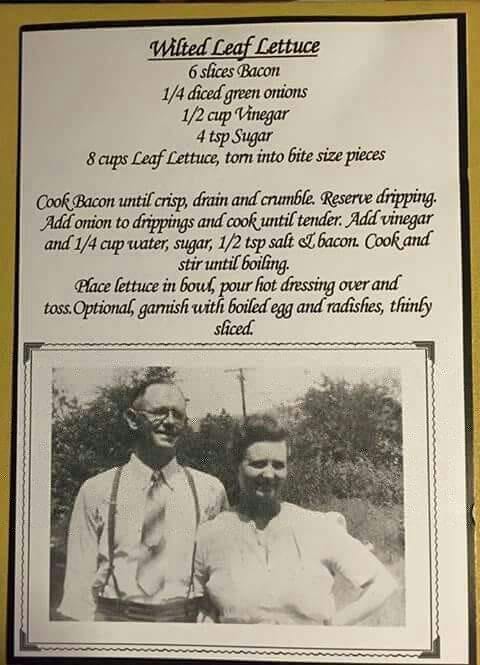 Wilted Leaf Lettuce
6 slices Bacon
1/4 diced green onions
1/2 cup Vinegar
4 tsp Sugar
8 cups Leaf Lettuce, torn into bite size pieces
Cook Bacon until crisp, drain and crumble. Reserve dripping.
Add onion to drippings and cook until tender. Add vinegar
and 1/4 cup water, sugar, 1/2 tsp salt & bacon. Cook and
stir until boiling.
Place lettuce in bowl, pour hot dressing over and
toss.Optional, garnish with boiled egg and radishes, thinly
sliced.